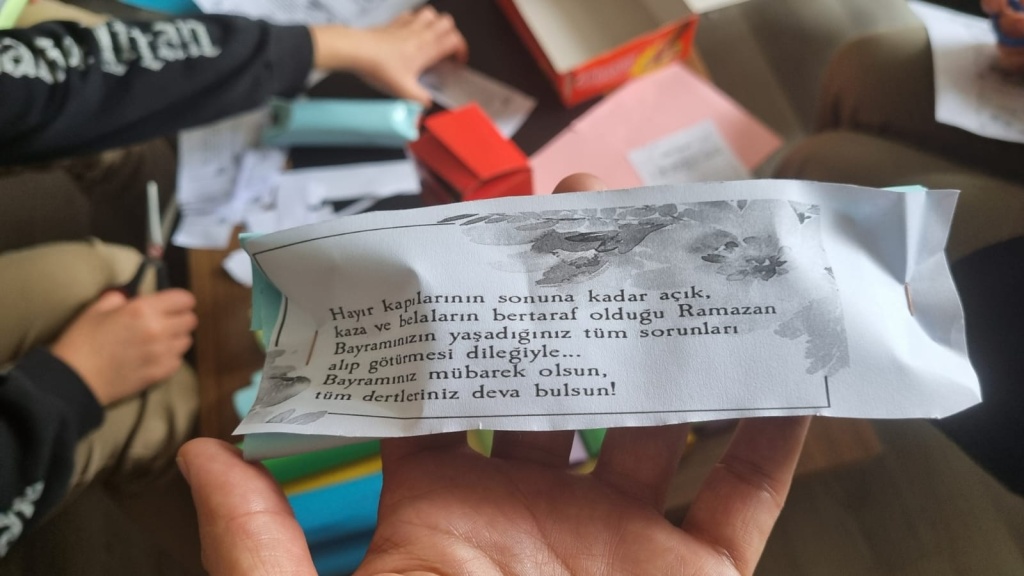 Hayır kapılarının sonuna kadar açık,
kaza ve belaların bertaraf olduğu Ramazan
Bayramınızın yaşadığınız tüm sorunları
alıp götürmesi dileğiyle...
Bayramınız mübarek olsun,
tüm dertleriniz deva bulsun!